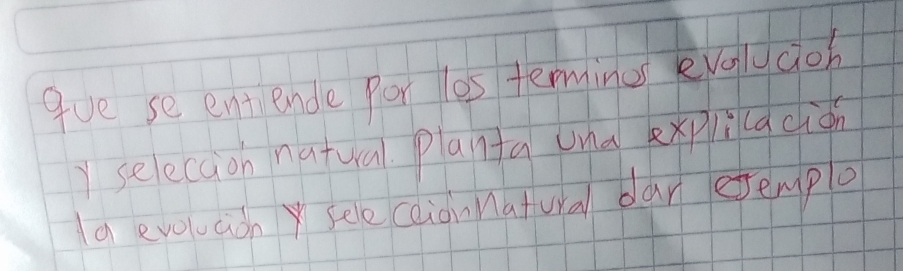 que se entiende por los terminos evolución
y selección natural. planta una explicación
la evolución y selecciónnatural dar ejemplo